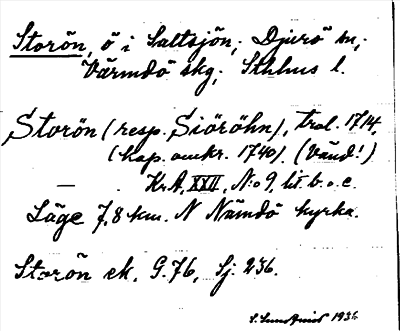 Storön, ö i Saltsjön; Djurö sn,
Värmdö skg; Sthlms l.
Storön (resp. Siöröhn), trol. 1714,
(kop. omkr. 1740). (Vänd!)
— . Kr.A. XXII, N:o 9, lit. b. o. c.
Läge 7,8 km. N Nämdö kyrka.
Storön ek. G. 76, Sj. 236.
1936